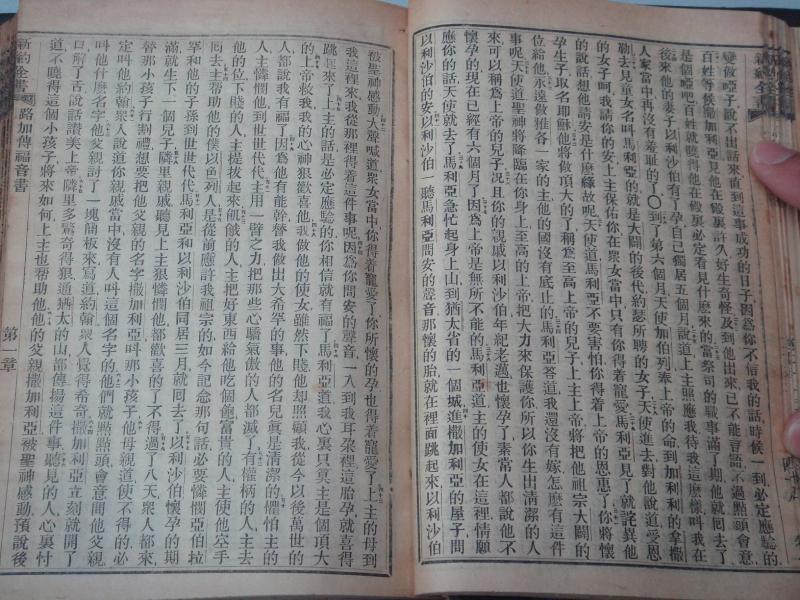 變做啞子說不出話來直到這事成功的日子因爲你不信我的話時候一到必定應驗的
百姓等候撒加利亞見他在殿裏許久好生奇怪及到他出來已不能言語不過點頭會意
是個啞吧百姓就曉得他在殿裏必定看見什麼來的當祭司的職事滿了期他就回去了
後來他的妻子以利沙伯有了孕自己獨居五個月說道上主照應我待我這麼樣叫我在
人家當中再沒有羞耻的了〇到了第六個月天使加伯列奉上帝的命到加利利的拿撒
勒去見童女名叫馬利亞的就是大闢的後代約瑟所聘的女子天使進去對他說道受恩
的女子呵我請你的安上主保佑你在衆女當中只有你得着寵愛馬利亞見了就詫異他
的說話想他請安是什麼緣故呢天使道馬利亞不要害怕你得着上帝的恩惠了你將懷
孕生子取名耶穌他將做頂大的了稱爲至高上帝的兒子上主上帝將把他祖宗大闢的
位給他永遠做雅各一家的主他的國沒有底止的馬利亞答道我還沒有嫁怎麼有這件
事呢天使道聖神將降臨在你身上至高的上帝把大力來保護你所以你生出清潔的人
來可以稱爲上帝的兒子況且你的親戚以利沙伯年紀老邁也懷孕了素常人都說他不
懷孕的現在已經有六個月了因爲上帝是無所不能的馬利亞道主的使女在這裡情願
應你的話天使就去了馬利亞急忙起身上山到猶太省的一個城進撒加利亞的屋子問
以利沙伯的安以利沙伯一聽馬利亞問安的聲音那懷的胎就在裡面跳起來以利沙伯
被聖神感動大聲喊道衆女當中你得着寵愛了你所懷的孕也得着寵愛了上主的母到
我這裡來我從那裡得着這件事呢因爲你問安的聲音一入到我耳朶裡這胎孕就喜得
跳起來了上主的話是必定應驗的你相信就有福了馬利亞道我心裏只異主是個頂大
的上帝救我我的心神狠歡喜他我做他的使女雖然下賤他却照顧我從今以後萬世的
人都說我有福了因爲他有能幹替我做出大希罕的事他的名兒眞是清潔的懼怕主的
人主憐憫他到世世代代主用一臂之力把那些心驕氣傲的人都滅了有權柄的人主去
他的位下賤的人主提拔起來飢餓的人主把好東西給他吃個飽富貴的人主使他空手
囘去主帮助他的僕以色列人是從前應許我祖宗的如今記念那句話必要憐憫亞伯拉
罕和他的子孫到世世代代馬利亞和以利沙伯同居三月就囘去了以利沙伯懷孕的期
滿就生下一個兒子隣里親戚聽見上主狠憐憫他都歡喜的了不得過了八天衆人都來
替那小孩子行割禮想要把他父親的名字撒加利亞叫那小孩子他母親道使不得的必
定叫他約翰衆人說道你親戚當中沒有人叫這個名字的他們就點點頭會意問他父親
要叫他什麼名字他父親討了一塊簡板來寫道約翰衆人覺得希奇撒加利亞立刻就開了
口解了舌說話讚美上帝隣里多驚奇得狠通猶太的山都傳揚這件事聽見的人心裏忖
道不曉得這個小孩子將來如何上主也帮助他他的父親撒加利亞被聖神感動預說後
新約全書 路加傳福音書 第一章